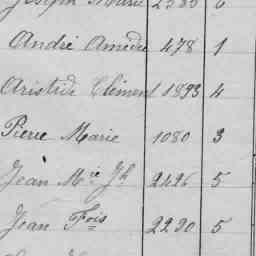 Joseph Marie 2385 6
André Amédée 478 1
Aristide Clément 1893 4
Pierre Marie 1080 3
Jean Mie Jh 2426 5
Jean Fois 2290 5